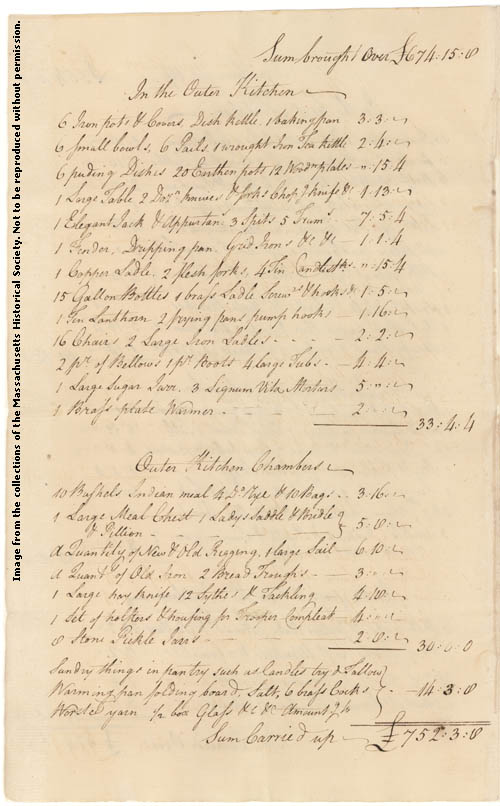 Sum brought Over £674:15:8
In the Outer Kitchen
6 Iron pots & Covers Dish kettle 1 bakeing pan 3:3:"
6 Small bowls, 6 Pails 1 wrought Iron Tea kettle 2:4:"
6 puding Dishes 20 Earthen pots 12 Wood.n plates ":15:4
1 Large Table 2 Doz.n knives & forks Chop.g knife &c 1:13:"
1 Elegant Jack & Appurtans. 3 Spits 5 7:5:4
1 Fender, Dripping pan, Grid Irons &c &c 1:1:4
1 Copper Ladle, 2 flesh forks, 4 Tin Candlestks ":15:4
15 Gallon Bottles 1 brass Ladle & hooks &c 1:5:"
1 Tin Lanthorn 2 frying pans pump hooks — 1:16:"
16 Chairs 2 Large Iron Ladles - - - - 2:2:"
2 pr. of Bellows 1 pr. Boots 4 large Tubs. — 4:4:"
1 Large Sugar Jarr. 3 Lignum Vita Mortars 5:":"
1 Brass plate Warmer - - - 2:":"
33:4:4
Outer Kitchen Chambers
10 Bushels Indian meal 4 Do Rye & 10 Bags.. 3:16:"
1 Large Meal Chest 1 Ladys Saddle & Bridle
& Pillion - - - 5:8:"
A Quantity of New & Old Rigging, 1 large Sail — 6:10:"
A Quant.y of Old Iron 2 Bread Troughs. — 3:":"
1 Large hay knife 12 Sythes & Tackling 4:18:"
1 Set of holsters & housing for Trooper Compleat — 4:":"
8 Stone Pickle Jarrs - - - 2:8:"
30:0:0
Sundry things in pantry such as Candles try'd Tallow
Warming pan folding board, Salt, 6 brass Cocks - 14:3:8
Worsted yarn 1/2 box Glass &c &c Amount
Sum Carried up — £752:3:8
Image from the collections of the Massachusetts Historical Society. Not to be reproduced without permission.